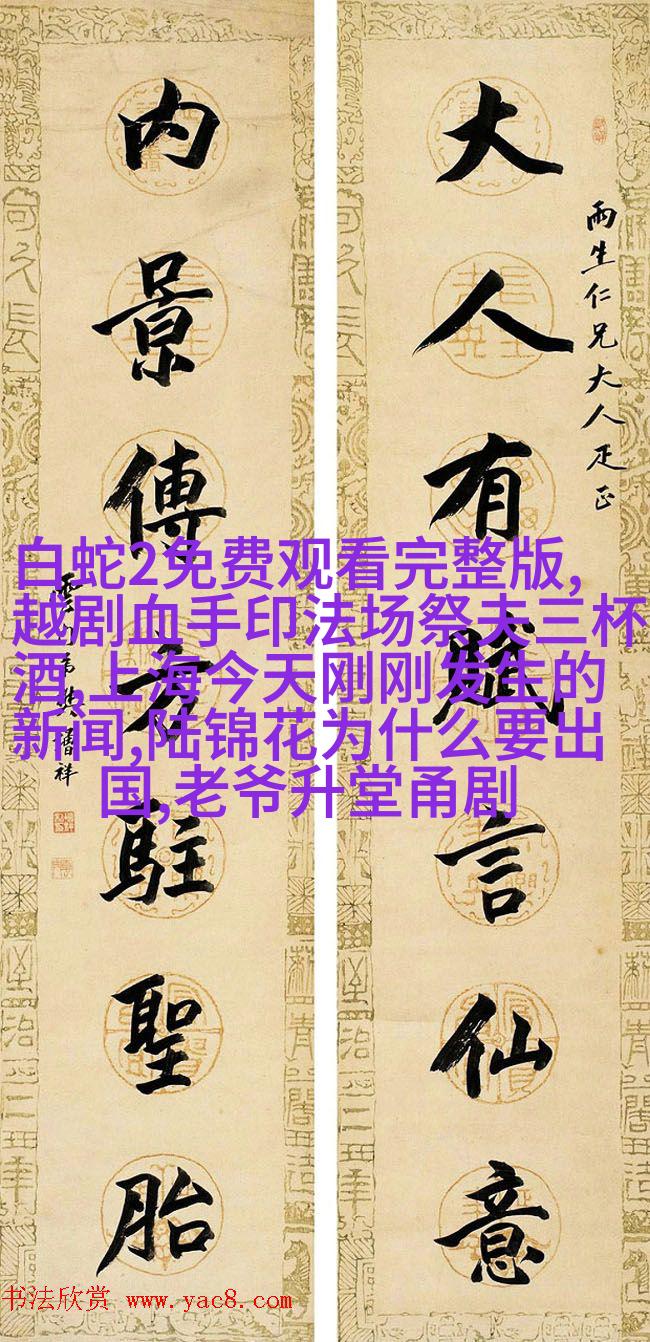 大人有賦言仙意
雨生仁兄大人疋正
内景傳方駐聖胎
樊增祥
白蛇2免费观看完整版,
越剧血手印法场祭夫三杯
酒,上海今天刚刚发生的
新闻,陆锦花为什么要出
国,老爷升堂甬剧
书法欣赏 www.yac8.com